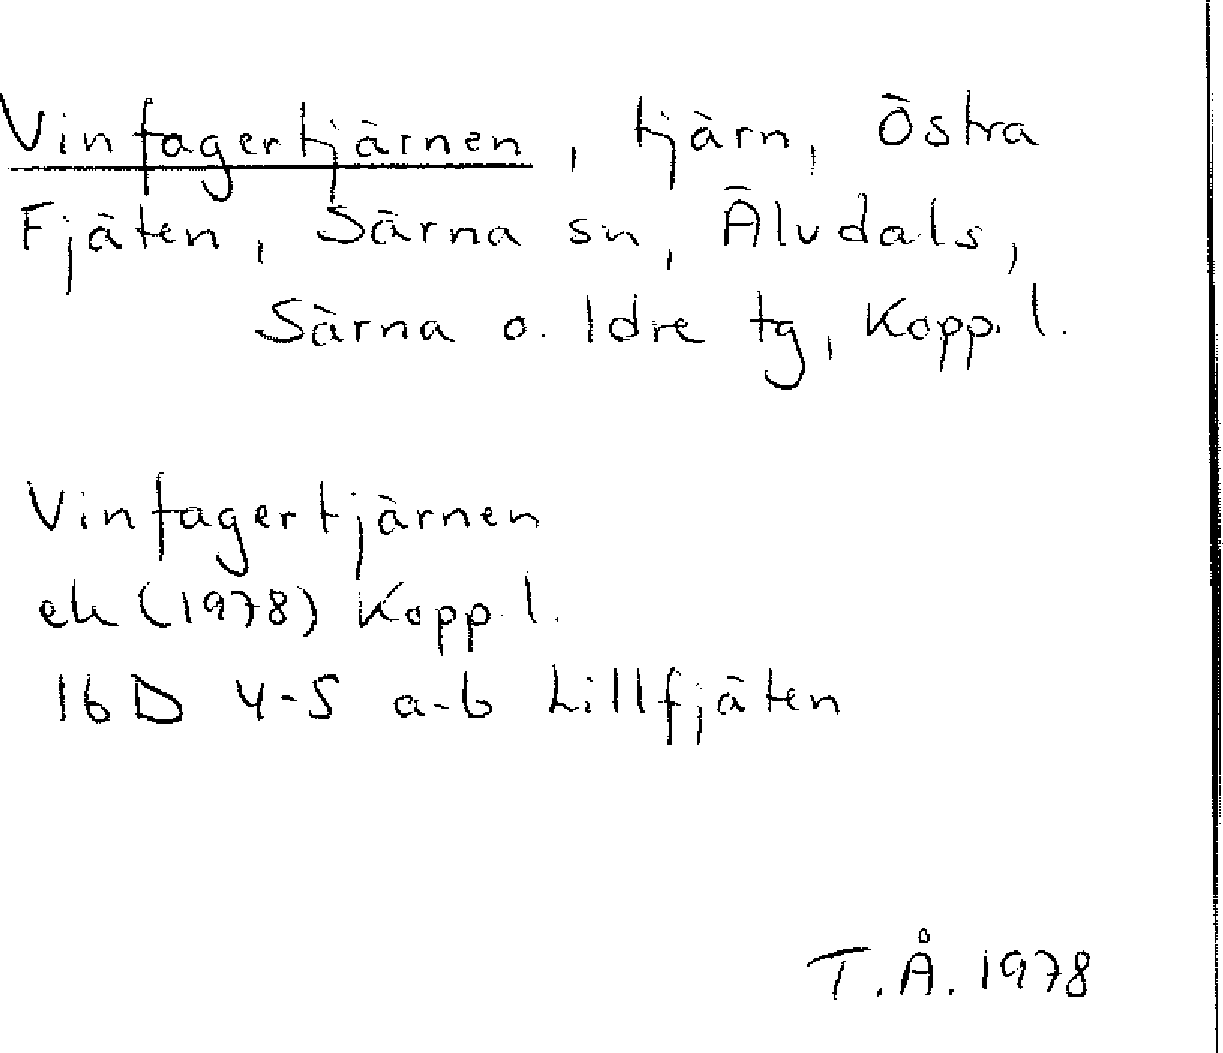 Vinfagertjärnen, tjärn, Östra
Fjäten, Särna sn, Älvdals,
Särna o. Idre tg, Kopp. l.
Vinfagertjärnen
ek (1978) Kopp. l.
16D 4-5 a-b Lillfjäten
T.Å. 1978